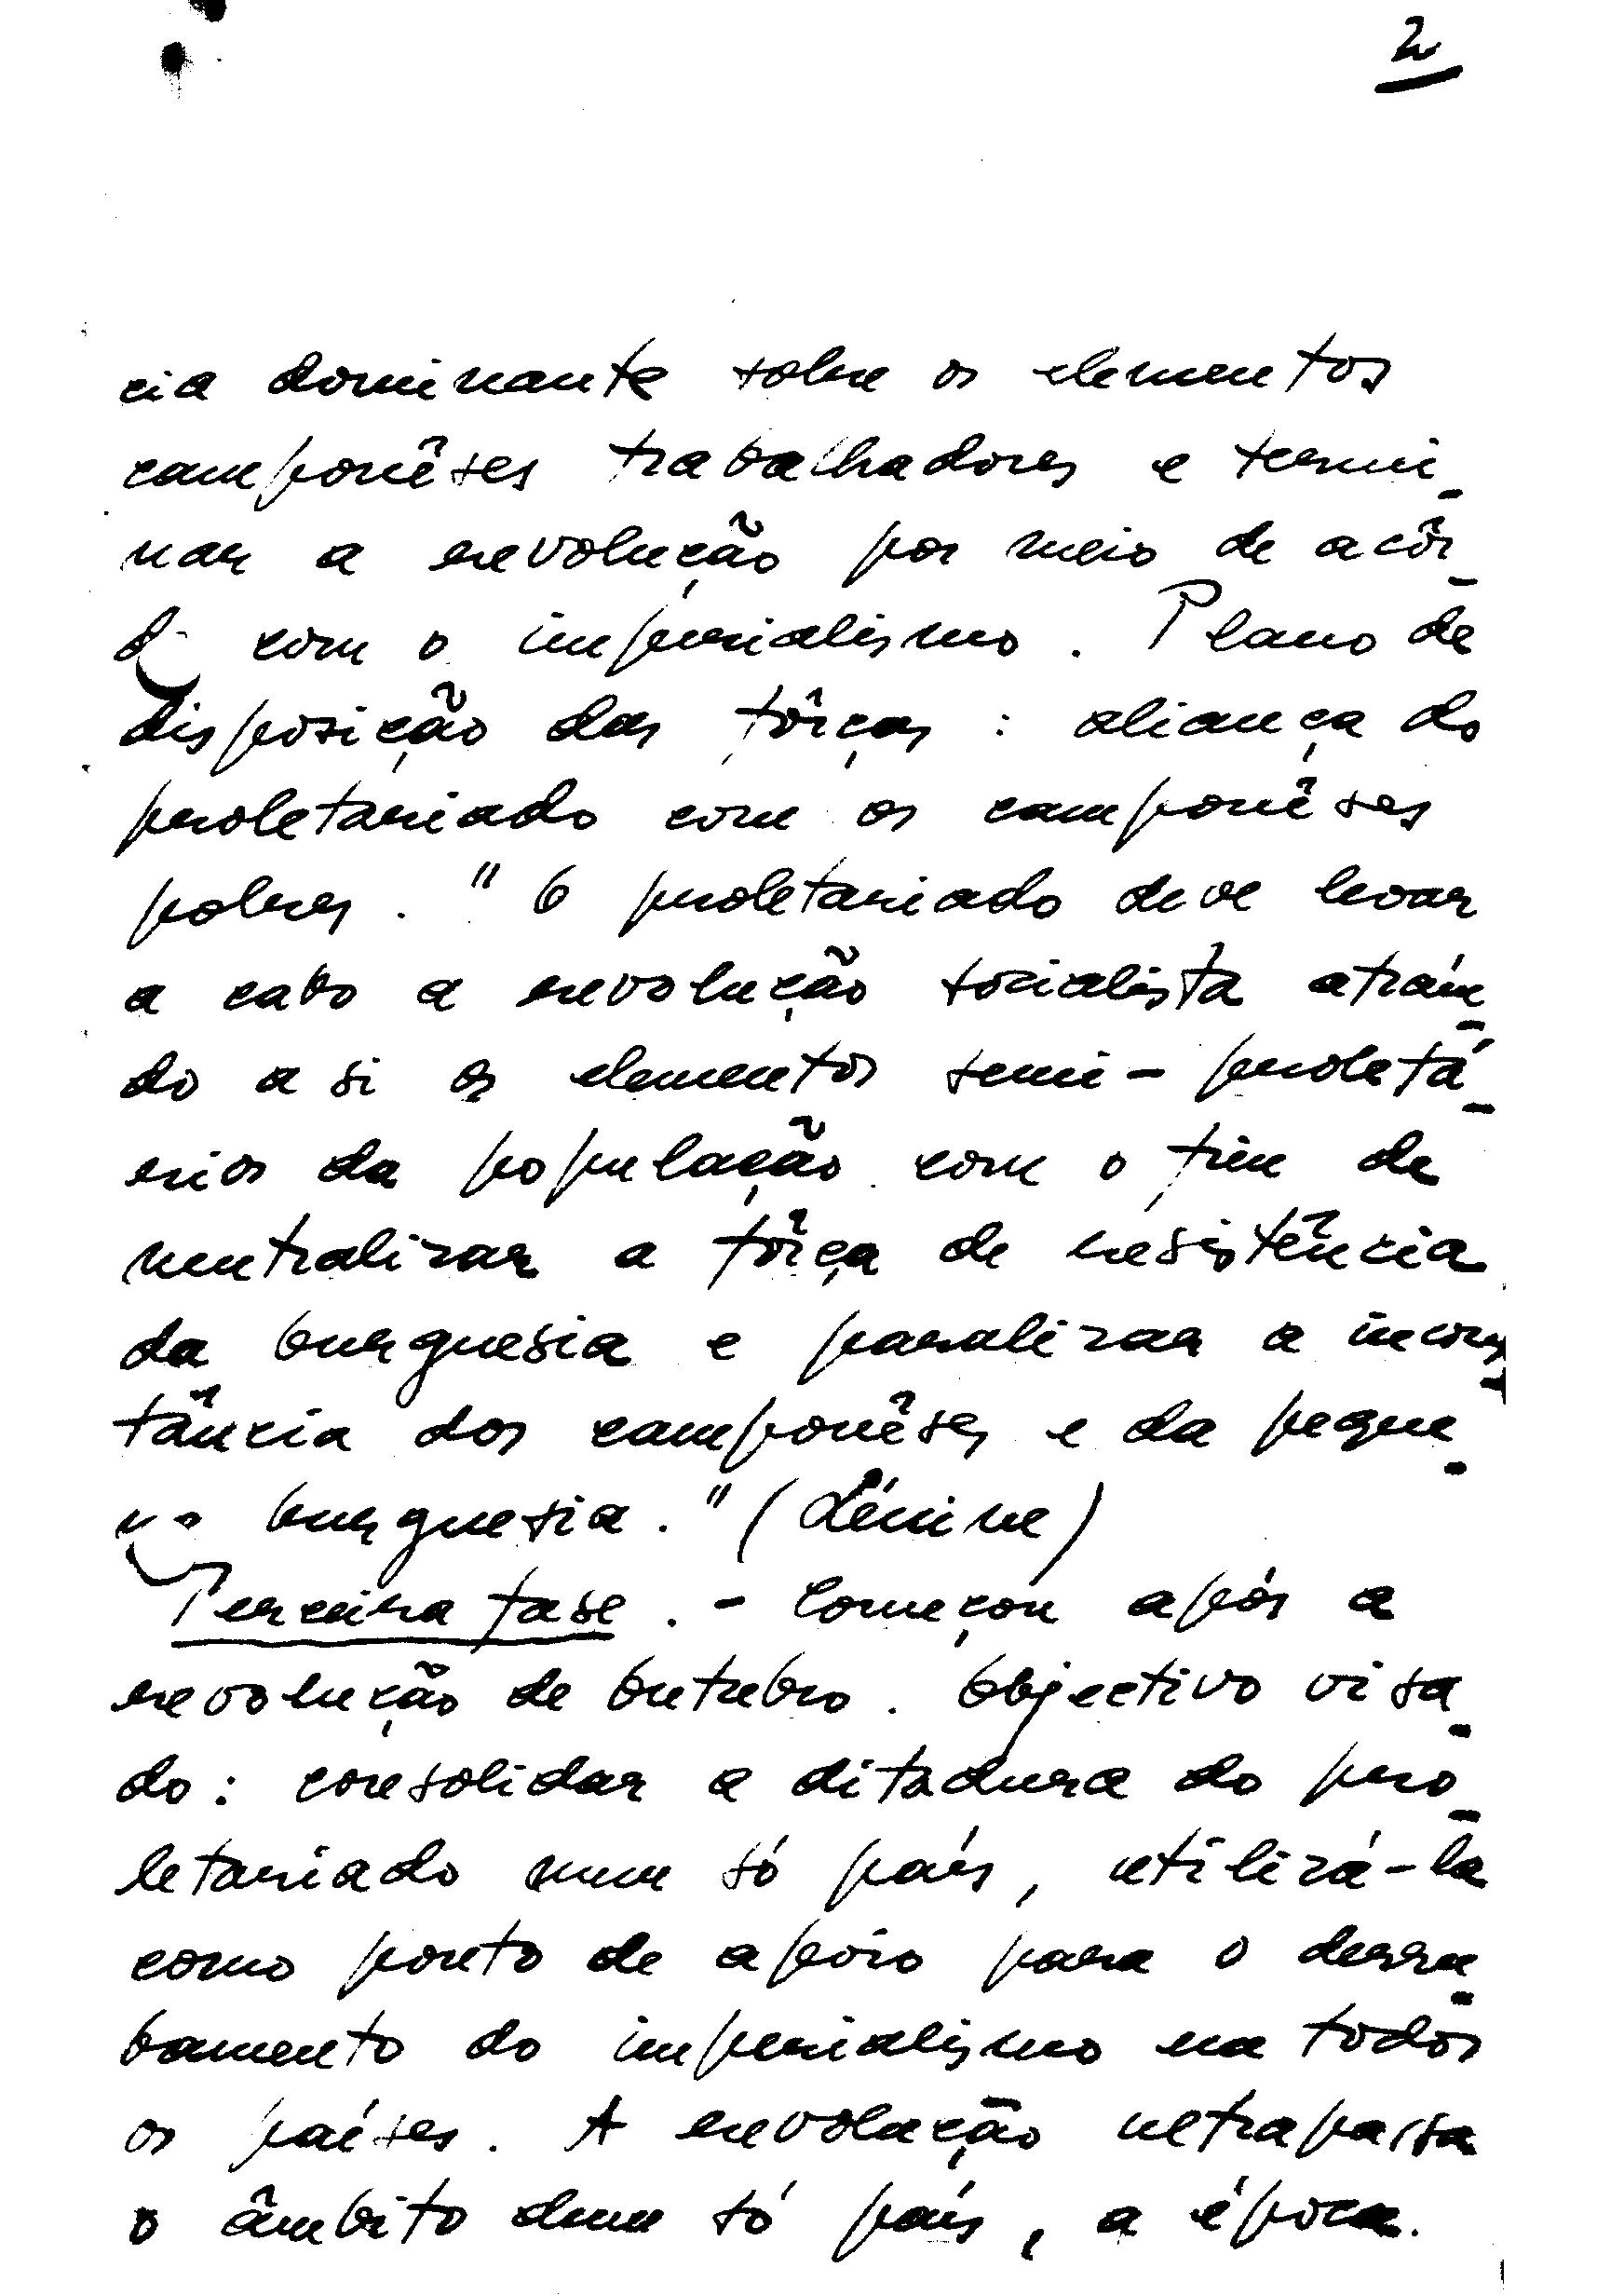 2
cia dominante sobre os elementos
camponêses trabalhadores e termi-
nar a revolução por meio de acôr-
do com o imperialismo. Plano de
disposição das fôrças : aliança do
proletariado com os camponêses
pobres. "O proletariado deve levar
a cabo a revolução socialista atrain-
do a si os elementos semi-proletá-
rios da população com o fim de
neutralizar a fôrça de resistência
da burguesia e paralizar a incons-
tância dos camponêses e da peque-
na burguesia." (Lénine)
Terceira fase. - Começou após a
revolução de Outubro. Objectivo visa-
do: consolidar a ditadura do pro-
letariado num só país, utilizá-la
como ponto de apoio para o derru-
bamento do imperialismo em todos
os países. A revolução ultrapassa
o âmbito dum só país, a época.